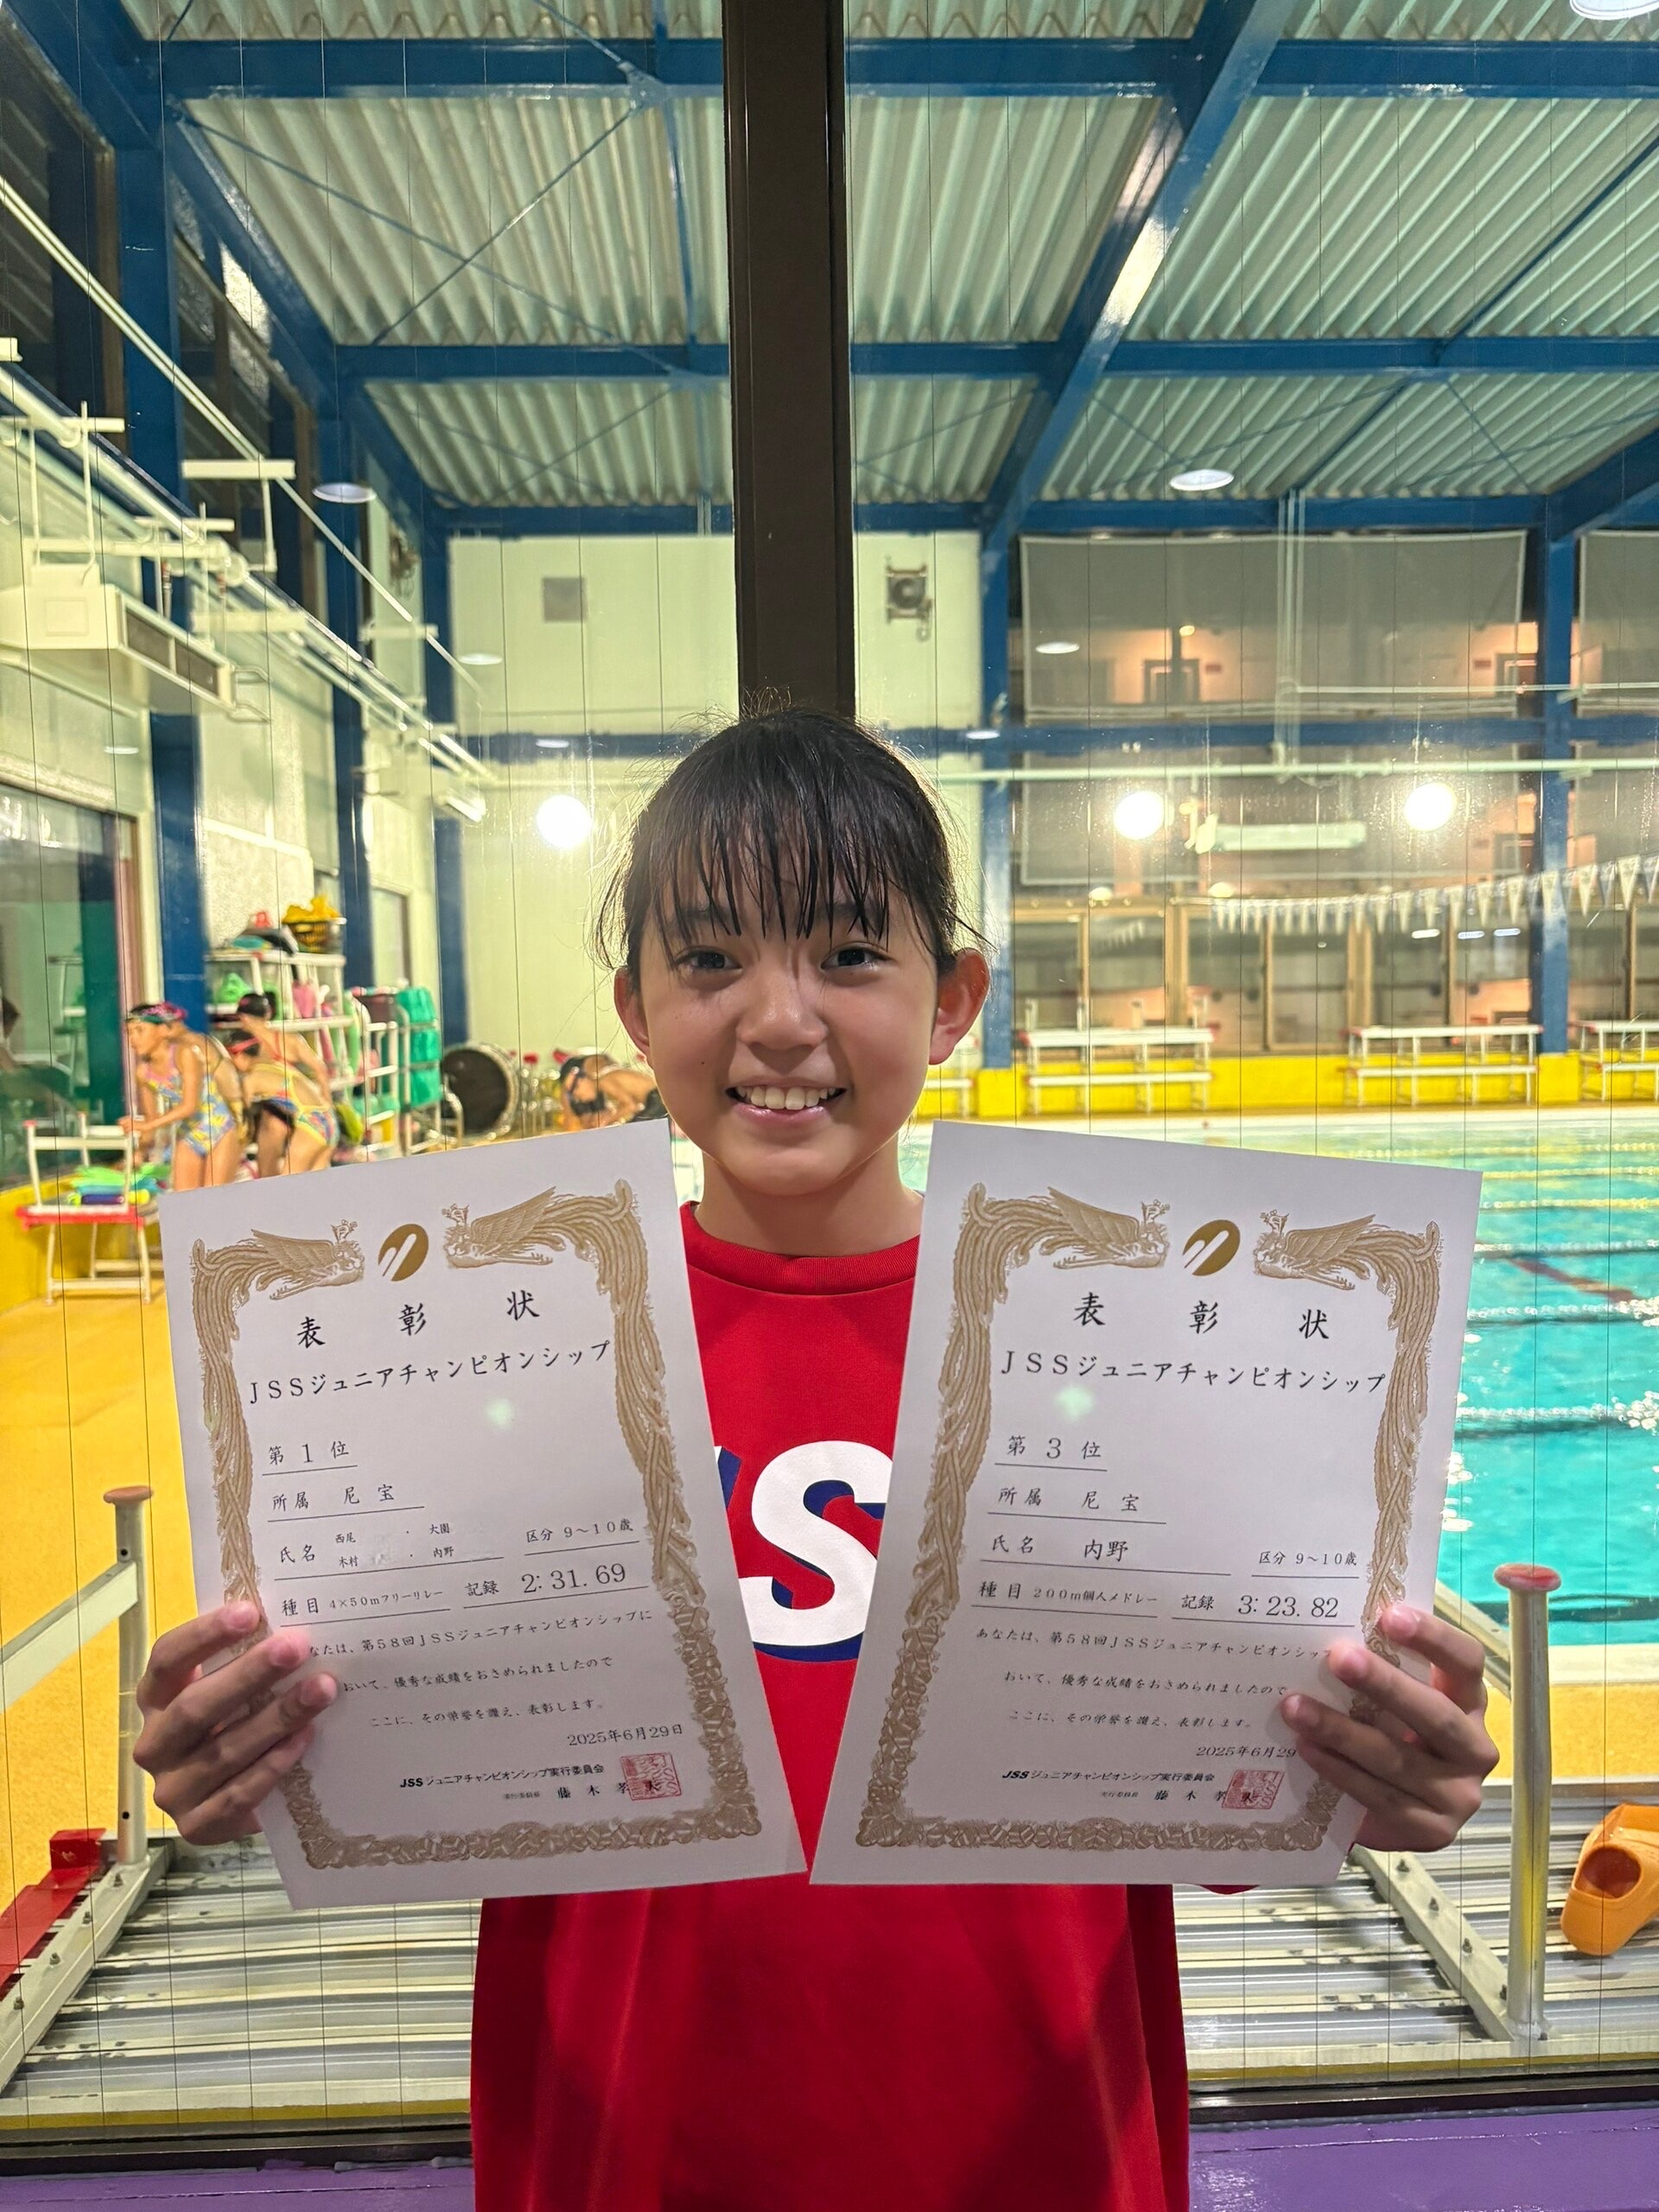 表彰状
JSSジュニアチャンピオンシップ
第1位
所属 尼宝
西尾 ・ 大園
氏名 木村 ・ 内野
区分 9～10歳
種目 4×50mフリーリレー 記録 2:31.69
なたは、第58回JSSジュニアチャンピオンシップに
おいて、優秀な成績をおさめられましたので
ここに、その栄誉を讃え、表彰します。
2025年6月29日
JSSジュニアチャンピオンシップ実行委員会
実行委員長 藤木孝
表彰状
JSSジュニアチャンピオンシップ
第3位
所属 尼宝
氏名 内野
区分 9～10歳
種目 200m個人メドレー 記録 3:23.82
あなたは、第58回JSSジュニアチャンピオンシップ
おいて、優秀な成績をおさめられましたので
ここに、その栄誉を讃え、表彰します。
2025年6月29
JSSジュニアチャンピオンシップ実行委員会
実行委員長 藤木孝
S